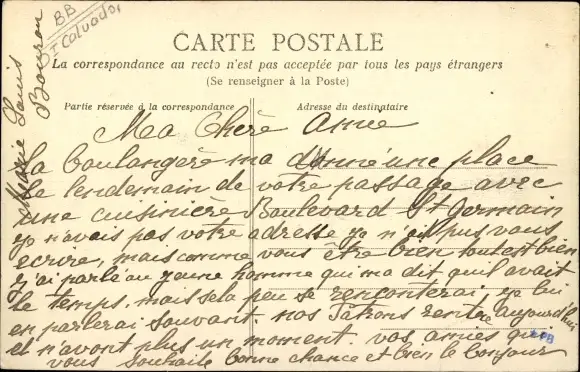 BB
Calvados
CARTE POSTALE
La correspondance au recto n'est pas acceptée par tous les pays étrangers
(Se renseigner à la Poste)
Partie réservée à la correspondance
Adresse du destinataire
Ma Chère Amie
la boulangère ma donné une place
le lendemain de votre passage avec
une cuisinière Boulevard St Germain
je n'avais pas votre adresse je n'ai pus vous
ecrire, mais comme vous être bien tout est bien
j'ai parlé au jeune homme qui ma dit qu'il avait
le temps. mais sela peu se rencontrerai je lui
en parlerai souvant. nos patrons rentre aujourd'hui
et n'avont plus un moment. vos amies qui
vous souhaite bonne chance et bien le bonjour
Marie Louis